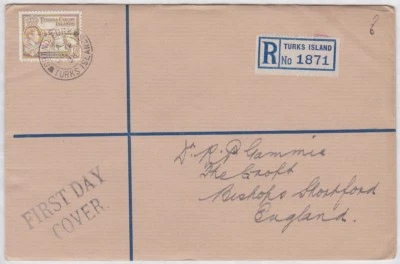 TURKS & CAICOS
ISLANDS
TURKS ISLANDS
R
TURKS ISLAND
No 1871
FIRST DAY
COVER.
Dr. R. P. Gammie
The Croft
Bishops Stortford
England.